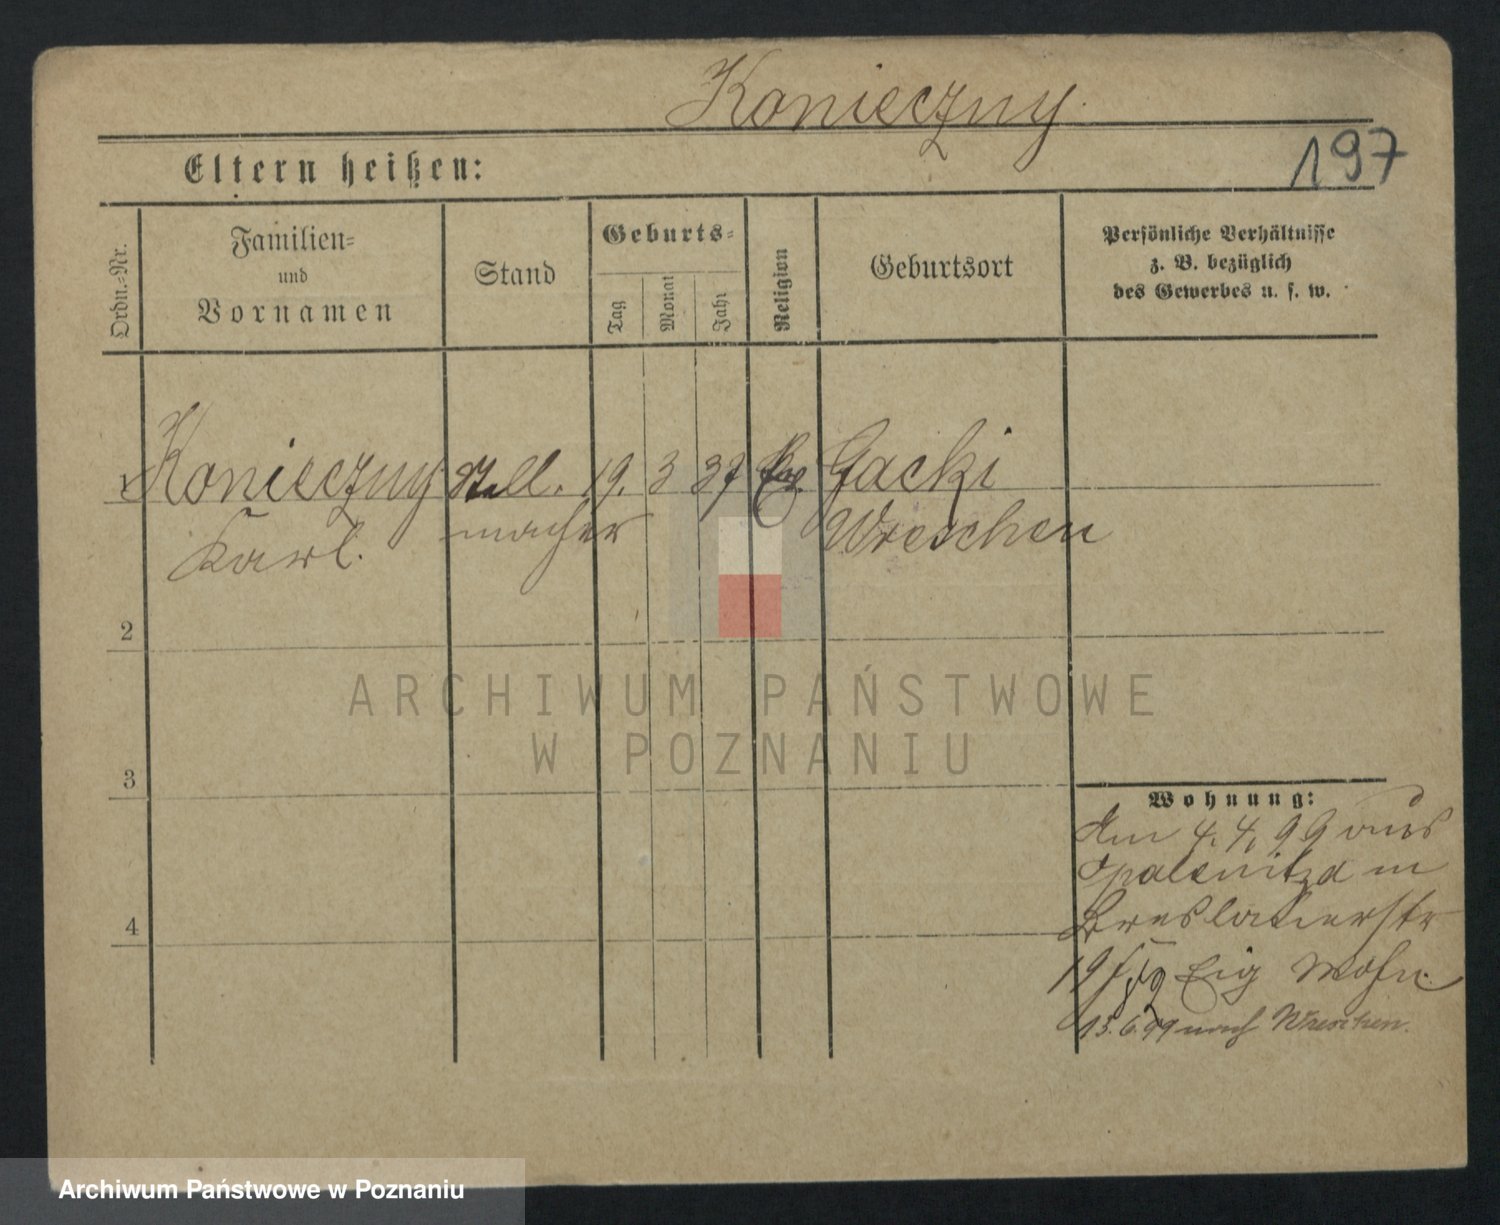 Konieczny
197
Eltern heißen:
Ordn.-Nr.
Familien-
und
Vornamen
Stand
Geburts-
Tag
Monat
Jahr
Religion
Geburtsort
Persönliche Verhältnisse
z. B. bezüglich
des Gewerbes u. s. w.
1 Konieczny Stell. 19. 3 37 Gacki
Karl. macher Wreschen
2
3
4
Wohnung:
Am 4. 4. 99 aus
Opalenitza in
Breslauerstr
19 Eig Wohn.
13. 6. 99 nach Wreschen.
ARCHIWUM PAŃSTWOWE
W POZNANIU
Archiwum Państwowe w Poznaniu